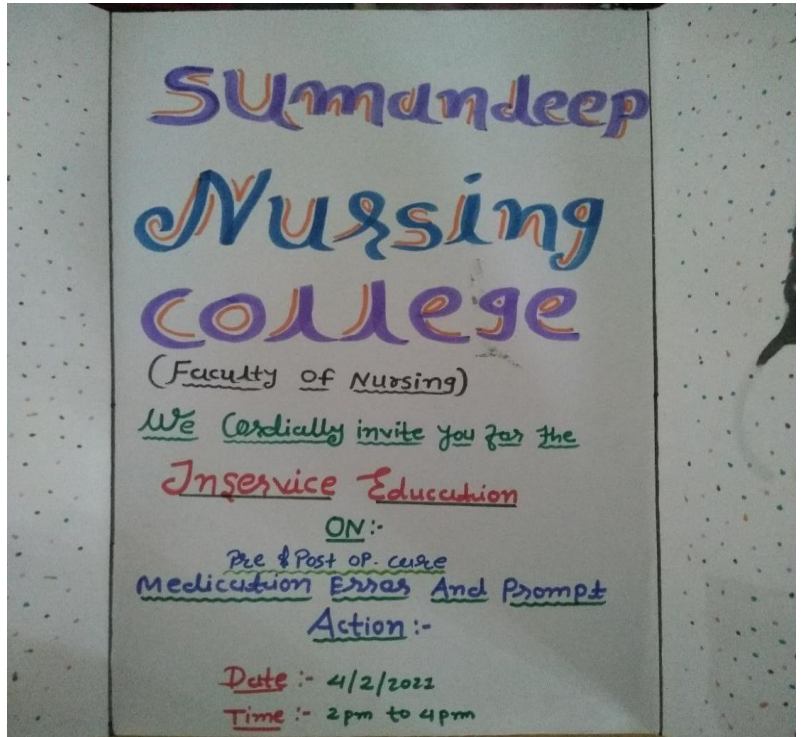 Sumandeep
Nursing
College
(Faculty of Nursing)
We Cordially invite you for the
Inservice Education
ON:-
Pre & Post op. care
Medication Error And Prompt
Action:-
Date:- 4/2/2022
Time:- 2pm to 4pm